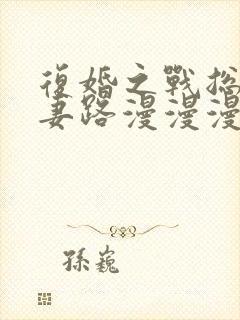 復婚之戰總
妻路漫漫漫
孫巍